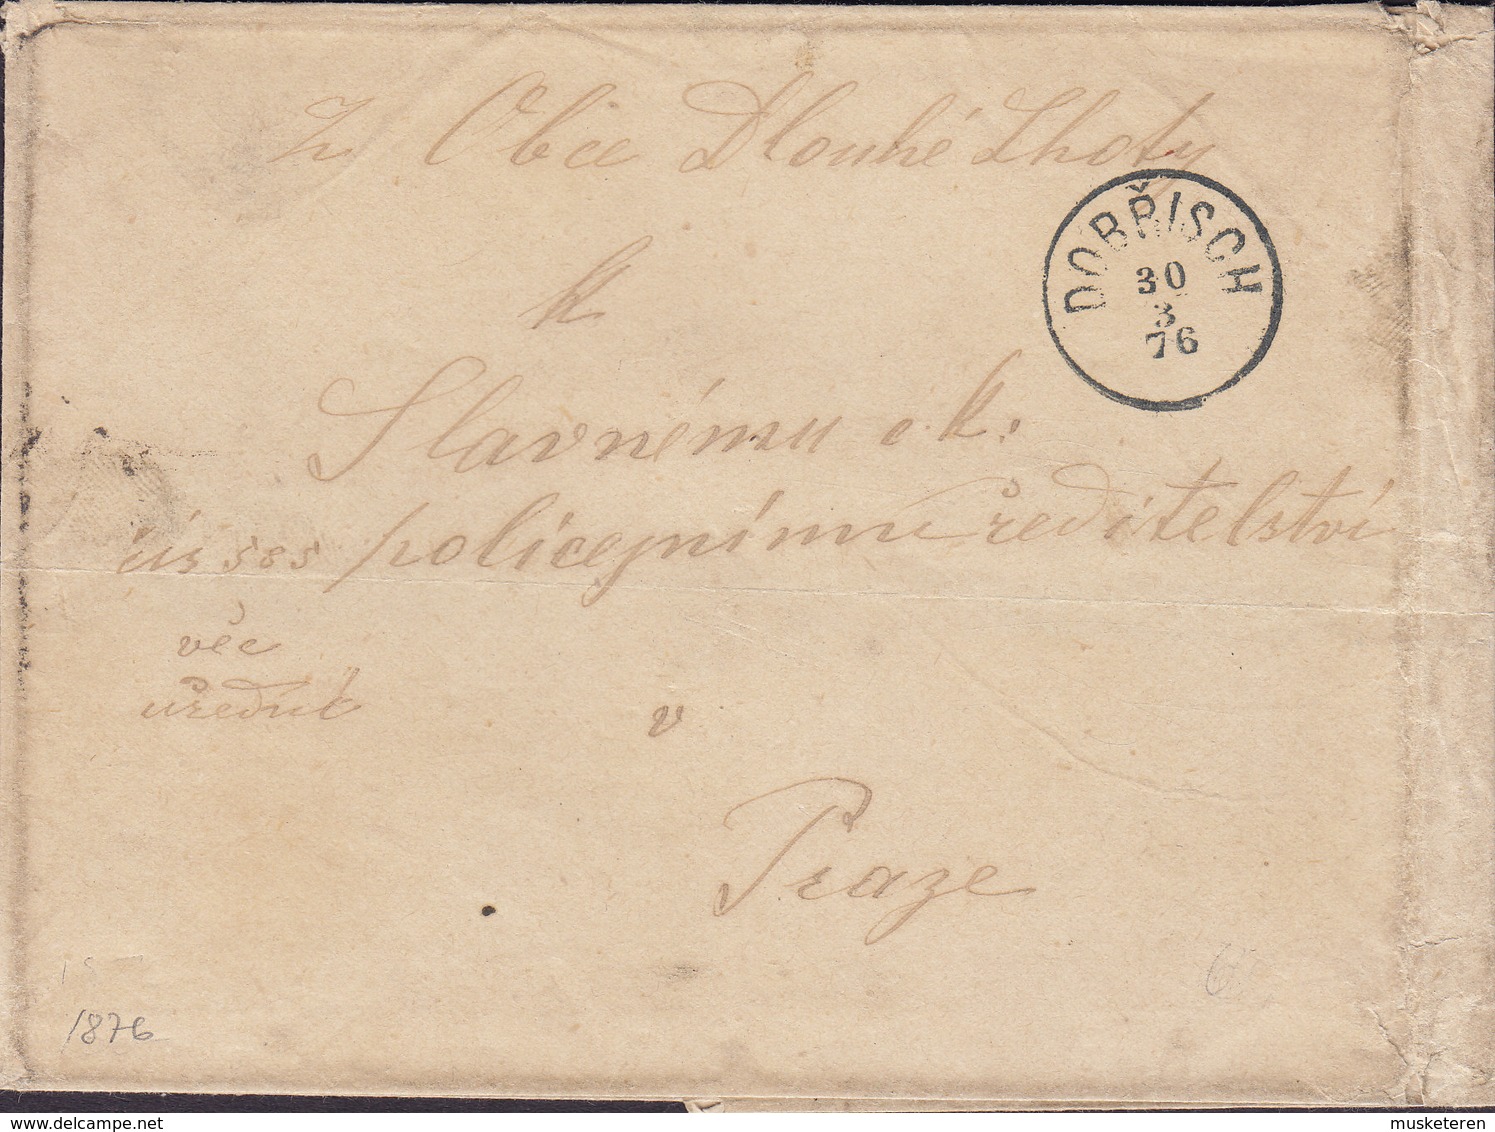 Z Obce Dlouhé Lhoty
DOBŘISCH
30
3
76
k
Slavnému c. k.
čís 585 policejnímu ředitelství
věc
úřední
v
Praze
1876
delcampe.net
musketeren